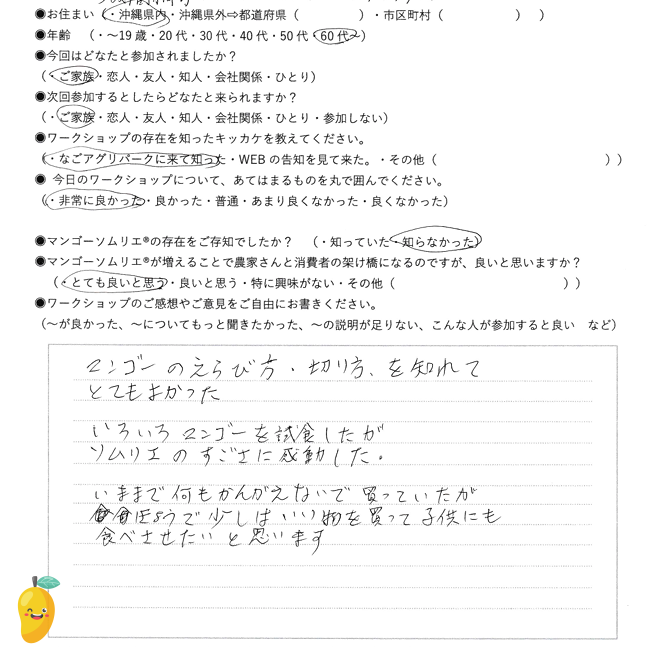 ●お住まい（・沖縄県内・沖縄県外⇨都道府県（　　　　　）・市区町村（　　　　　　）　）
●年齢　（・～19歳・20代・30代・40代・50代・60代～）
●今回はどなたと参加されましたか？
（・ご家族・恋人・友人・知人・会社関係・ひとり）
●次回参加するとしたらどなたと来られますか？
（・ご家族・恋人・友人・知人・会社関係・ひとり・参加しない）
●ワークショップの存在を知ったキッカケを教えてください。
（・なごアグリパークに来て知った・WEBの告知を見て来た。・その他（　　　　　　　　　　　　　　））
● 今日のワークショップについて、あてはまるものを丸で囲んでください。
（・非常に良かった・良かった・普通・あまり良くなかった・良くなかった）
●マンゴーソムリエ®の存在をご存知でしたか？　（・知っていた・知らなかった）
●マンゴーソムリエ®が増えることで農家さんと消費者の架け橋になるのですが、良いと思いますか？
（・とても良いと思う・良いと思う・特に興味がない・その他（　　　　　　　　　　　　　　））
●ワークショップのご感想やご意見をご自由にお書きください。
（～が良かった、～についてもっと聞きたかった、～の説明が足りない、こんな人が参加すると良い　など）
マンゴーのえらび方・切り方、を知れて
とてもよかった
いろいろマンゴーを試食したが
ソムリエのすごさに感動した。
いままで何もかんがえないで買っていたが
ほうで少しはいい物を買って子供にも
食べさせたいと思います